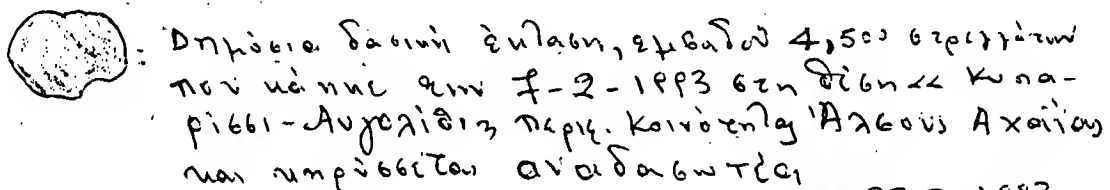 : Δημόσια δασική έκταση, εμβαδού 4,500 στρεμμάτων
που κάηκε την 7-2-1993 στη θέση «Κυπα-
ρίσσι-Αυγολίθι» περιφ. Κοινότητας Άλσους Αχαΐας
και κηρύσσεται αναδασωτέα
1993